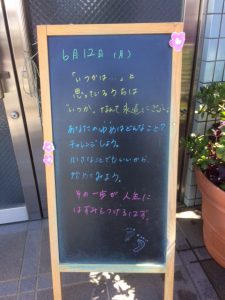 6月12日(月)
「いつかは…」と
思っているうちは
"いつか"なんて永遠にこない。
あなたのゆめはどんなこと?
チャレンジしよう。
小さなことでもいいから
始めてみよう。
その一歩が人生に
はずみをつけるはず。